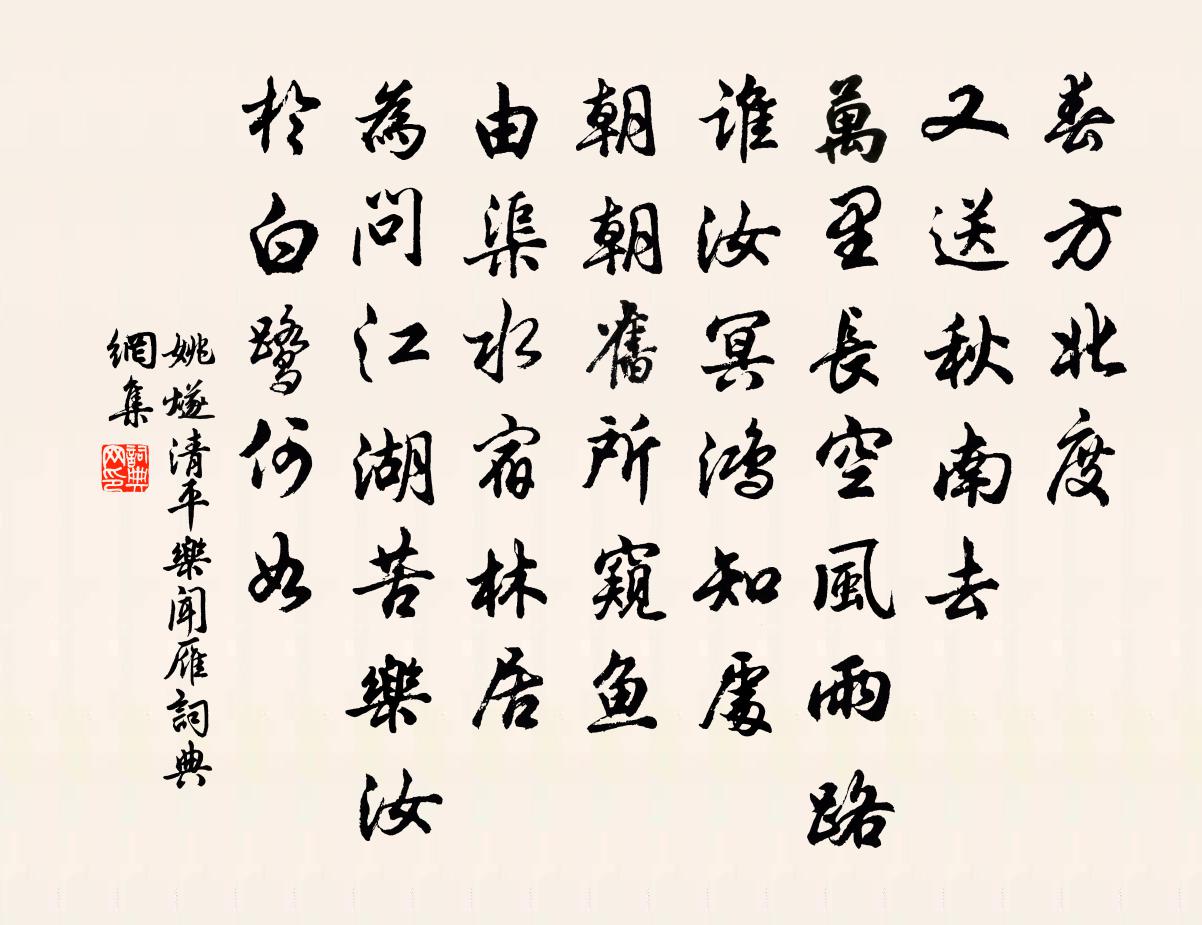 春方北度
又送秋南去
萬里長空風雨路
谁汝冥鸿知處
朝朝舊所窺魚
由渠水宿林居
為問江湖苦樂汝
於白鹭何如
姚燧清平樂聞雁詞典
網集
詞典网印